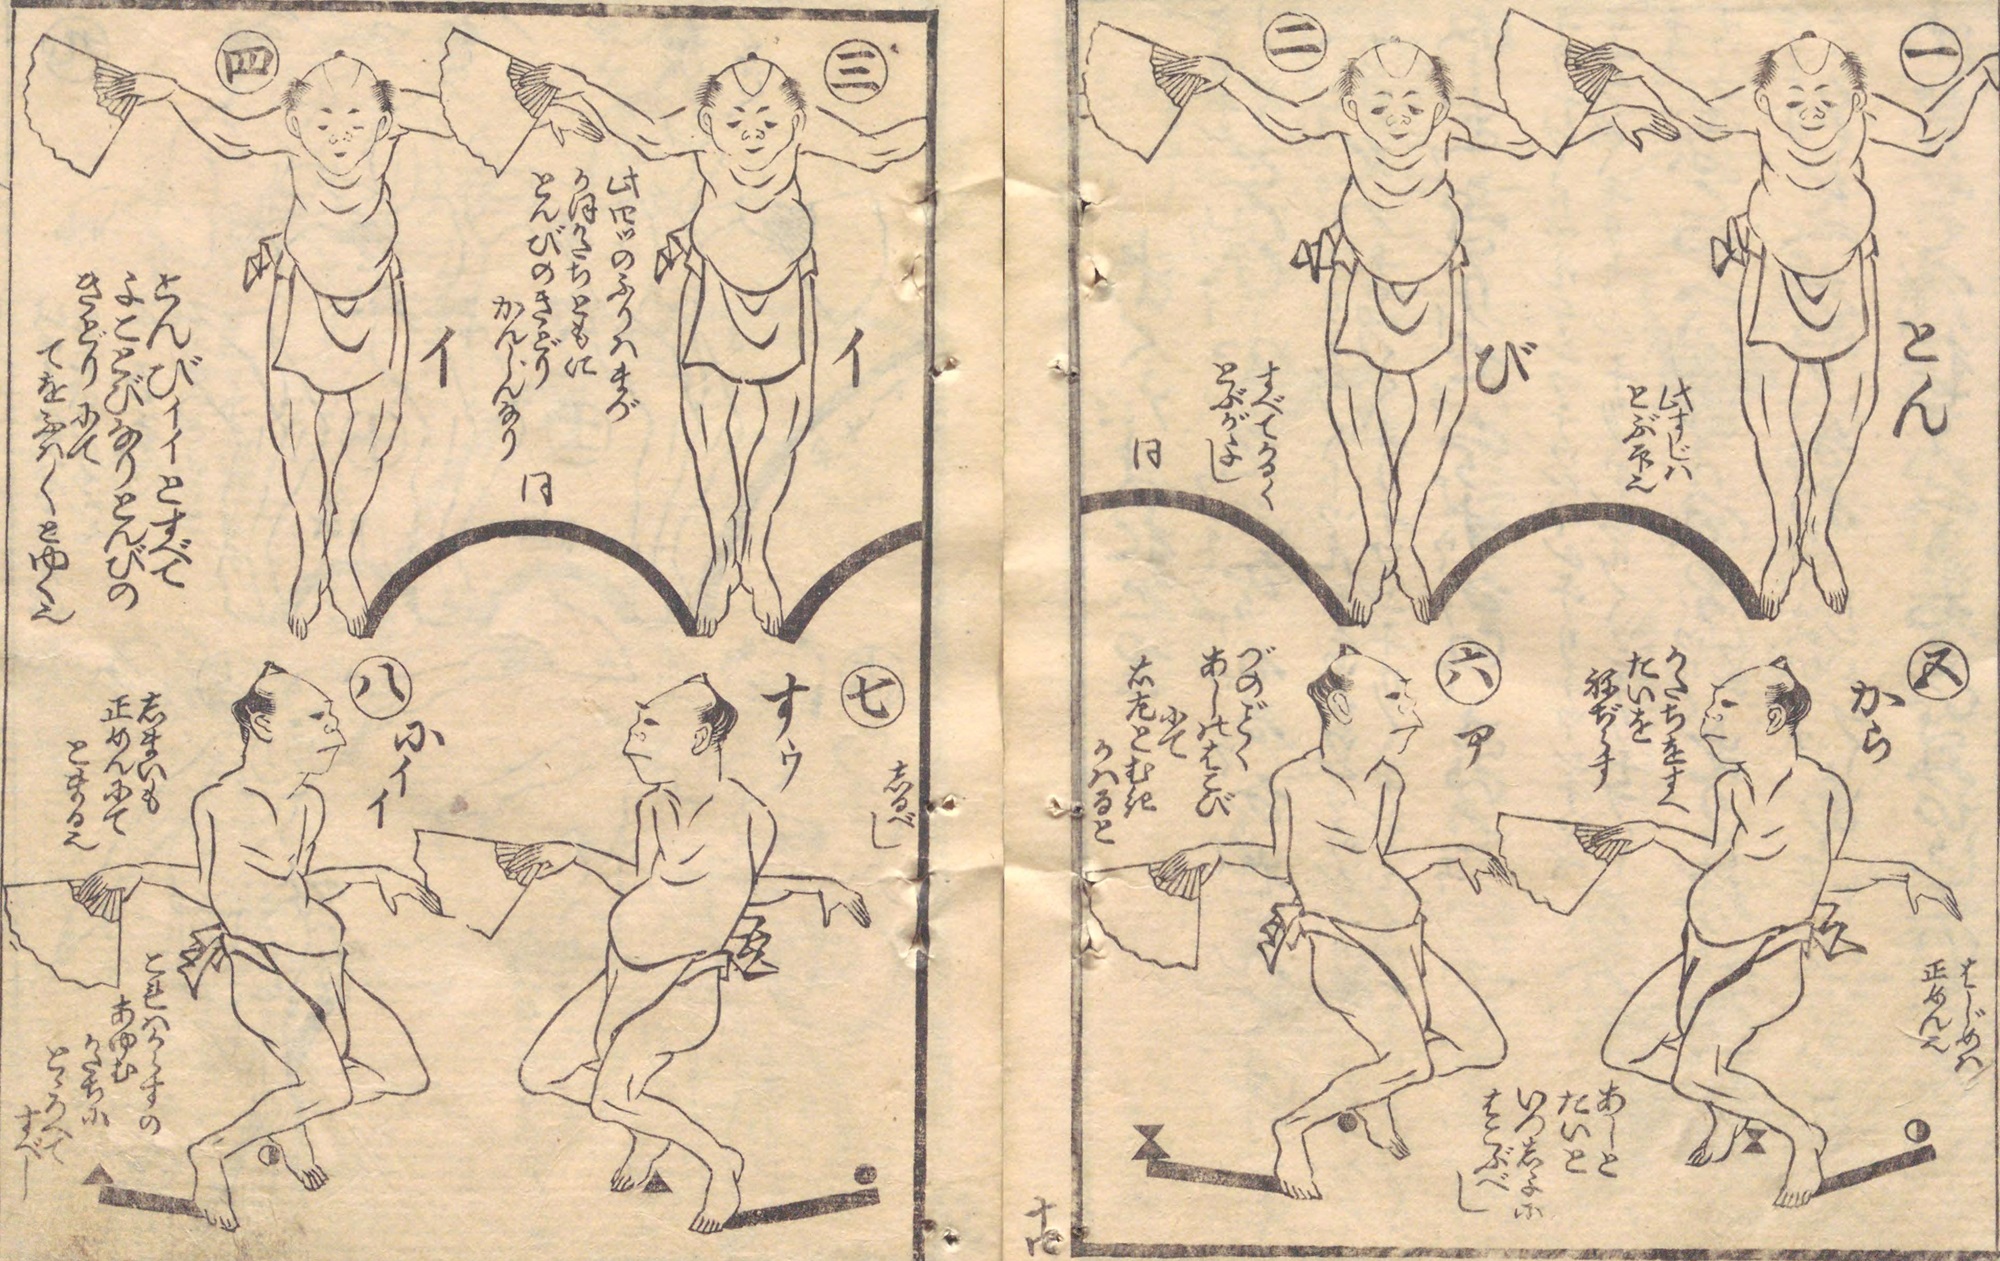 一
とん
此すじハ
とぶ所也
二
び
すべてかるく
とぶがよし
同
五
から
かたちをすへ
たいを
ねぢらす
はじめハ
正めん也
六
ア
づのごとく
あしはこび
にて
右左とむき
かハると
あしと
たいと
いつしよに
はこぶべし
十四
三
イ
此四ツのふりハまづ
かほかたちともに
とんびのきどり
かんじんなり
同
四
イ
とんびイイとすべて
よことびなりとんびの
きどりにて
てをふハ〳〵とゆく也
七
すウ
しるべし
八
にイイ
しまいも
正めんにて
とまる也
これハからすの
あゆむ
かたちに
とゝろへて
すべし